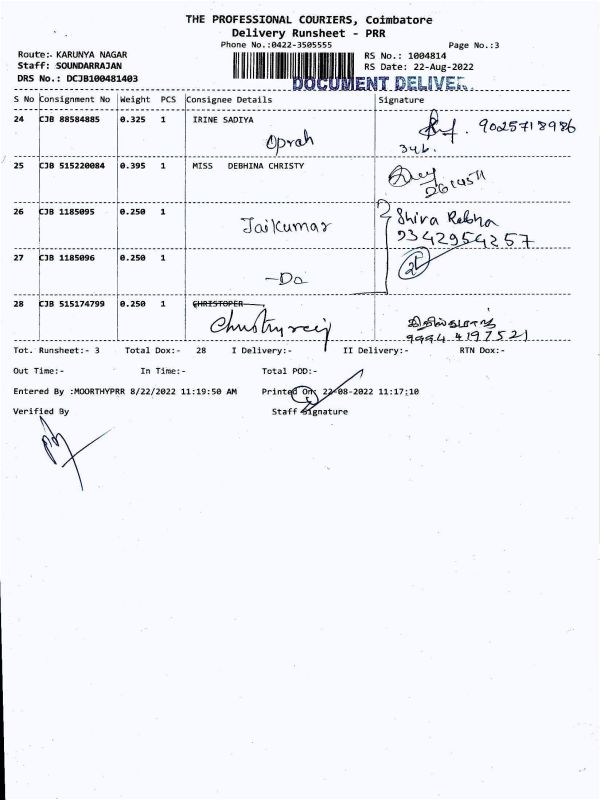 THE PROFESSIONAL COURIERS, Coimbatore
Delivery Runsheet - PRR
Phone No.:0422-3505555
Page No.:3
Route:- KARUNYA NAGAR
RS No.: 1004814
Staff: SOUNDARRAJAN
RS Date: 22-Aug-2022
DRS No.: DCJB100481403
DOCUMENT DELIVER
S No Consignment No Weight PCS Consignee Details Signature
24 CJB 88584885 0.325 1 IRINE SADIYA 9025718986
Oprah
25 CJB 515220084 0.395 1 MISS DEBHINA CHRISTY
26 CJB 1185095 0.250 1 Shiva Rabha
Jaikumar 9342954257
27 CJB 1185096 0.250 1
-Do
28 CJB 515174799 0.250 1 CHRISTOPER
9994 4197521
Tot. Runsheet:- 3 Total Dox:- 28 I Delivery:- II Delivery:- RTN Dox:-
Out Time:- In Time:- Total POD:-
Entered By :MOORTHYPRR 8/22/2022 11:19:50 AM Printed On: 22-08-2022 11:17:10
Verified By Staff Signature